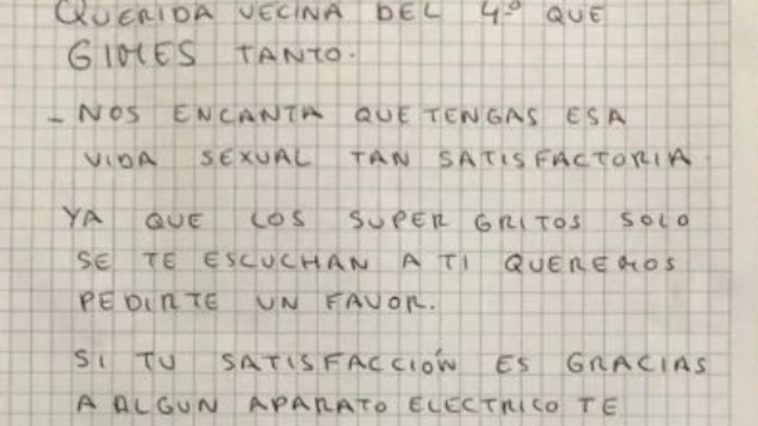 QUERIDA VECINA DEL 4º QUE
GIMES TANTO.
- NOS ENCANTA QUE TENGAS ESA
VIDA SEXUAL TAN SATISFACTORIA.
YA QUE LOS SUPER GRITOS SOLO
SE TE ESCUCHAN A TI QUEREMOS
PEDIRTE UN FAVOR.
SI TU SATISFACCIÓN ES GRACIAS
A ALGUN APARATO ELECTRICO TE